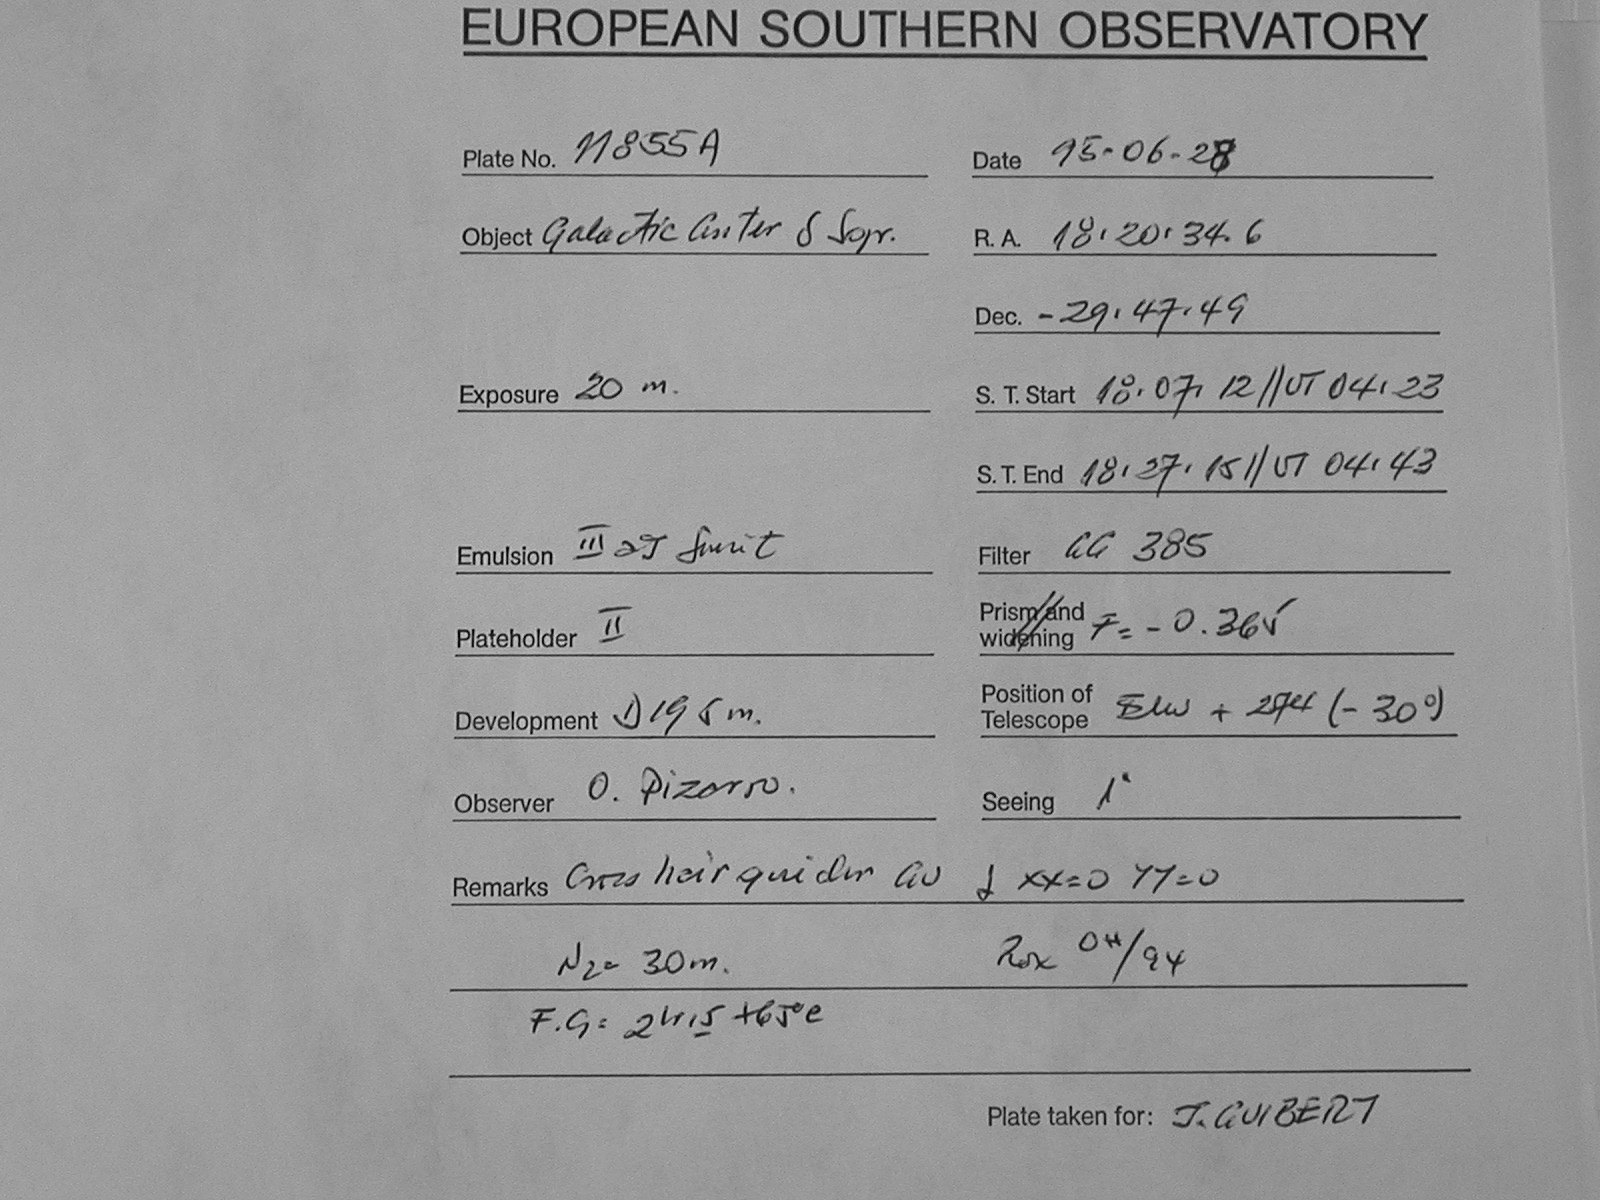 EUROPEAN SOUTHERN OBSERVATORY
Plate No. 11855A Date 95-06-28
Object Galactic Center S Sopr. R. A. 18:20:34.6
Dec. -29:47:49
Exposure 20 m. S. T. Start 18:07:12//UT 04:23
S. T. End 18:27:15//UT 04:43
Emulsion III aJ Filter GG 385
Plateholder II Prism and widening F= -0.365
Development D19 5m. Position of Telescope (-30°)
Observer O. Pizarro. Seeing 1"
Remarks Cross hair guider xx=0 YY=0
N2= 30m. /94
F.G=
Plate taken for: J. GUIBERT